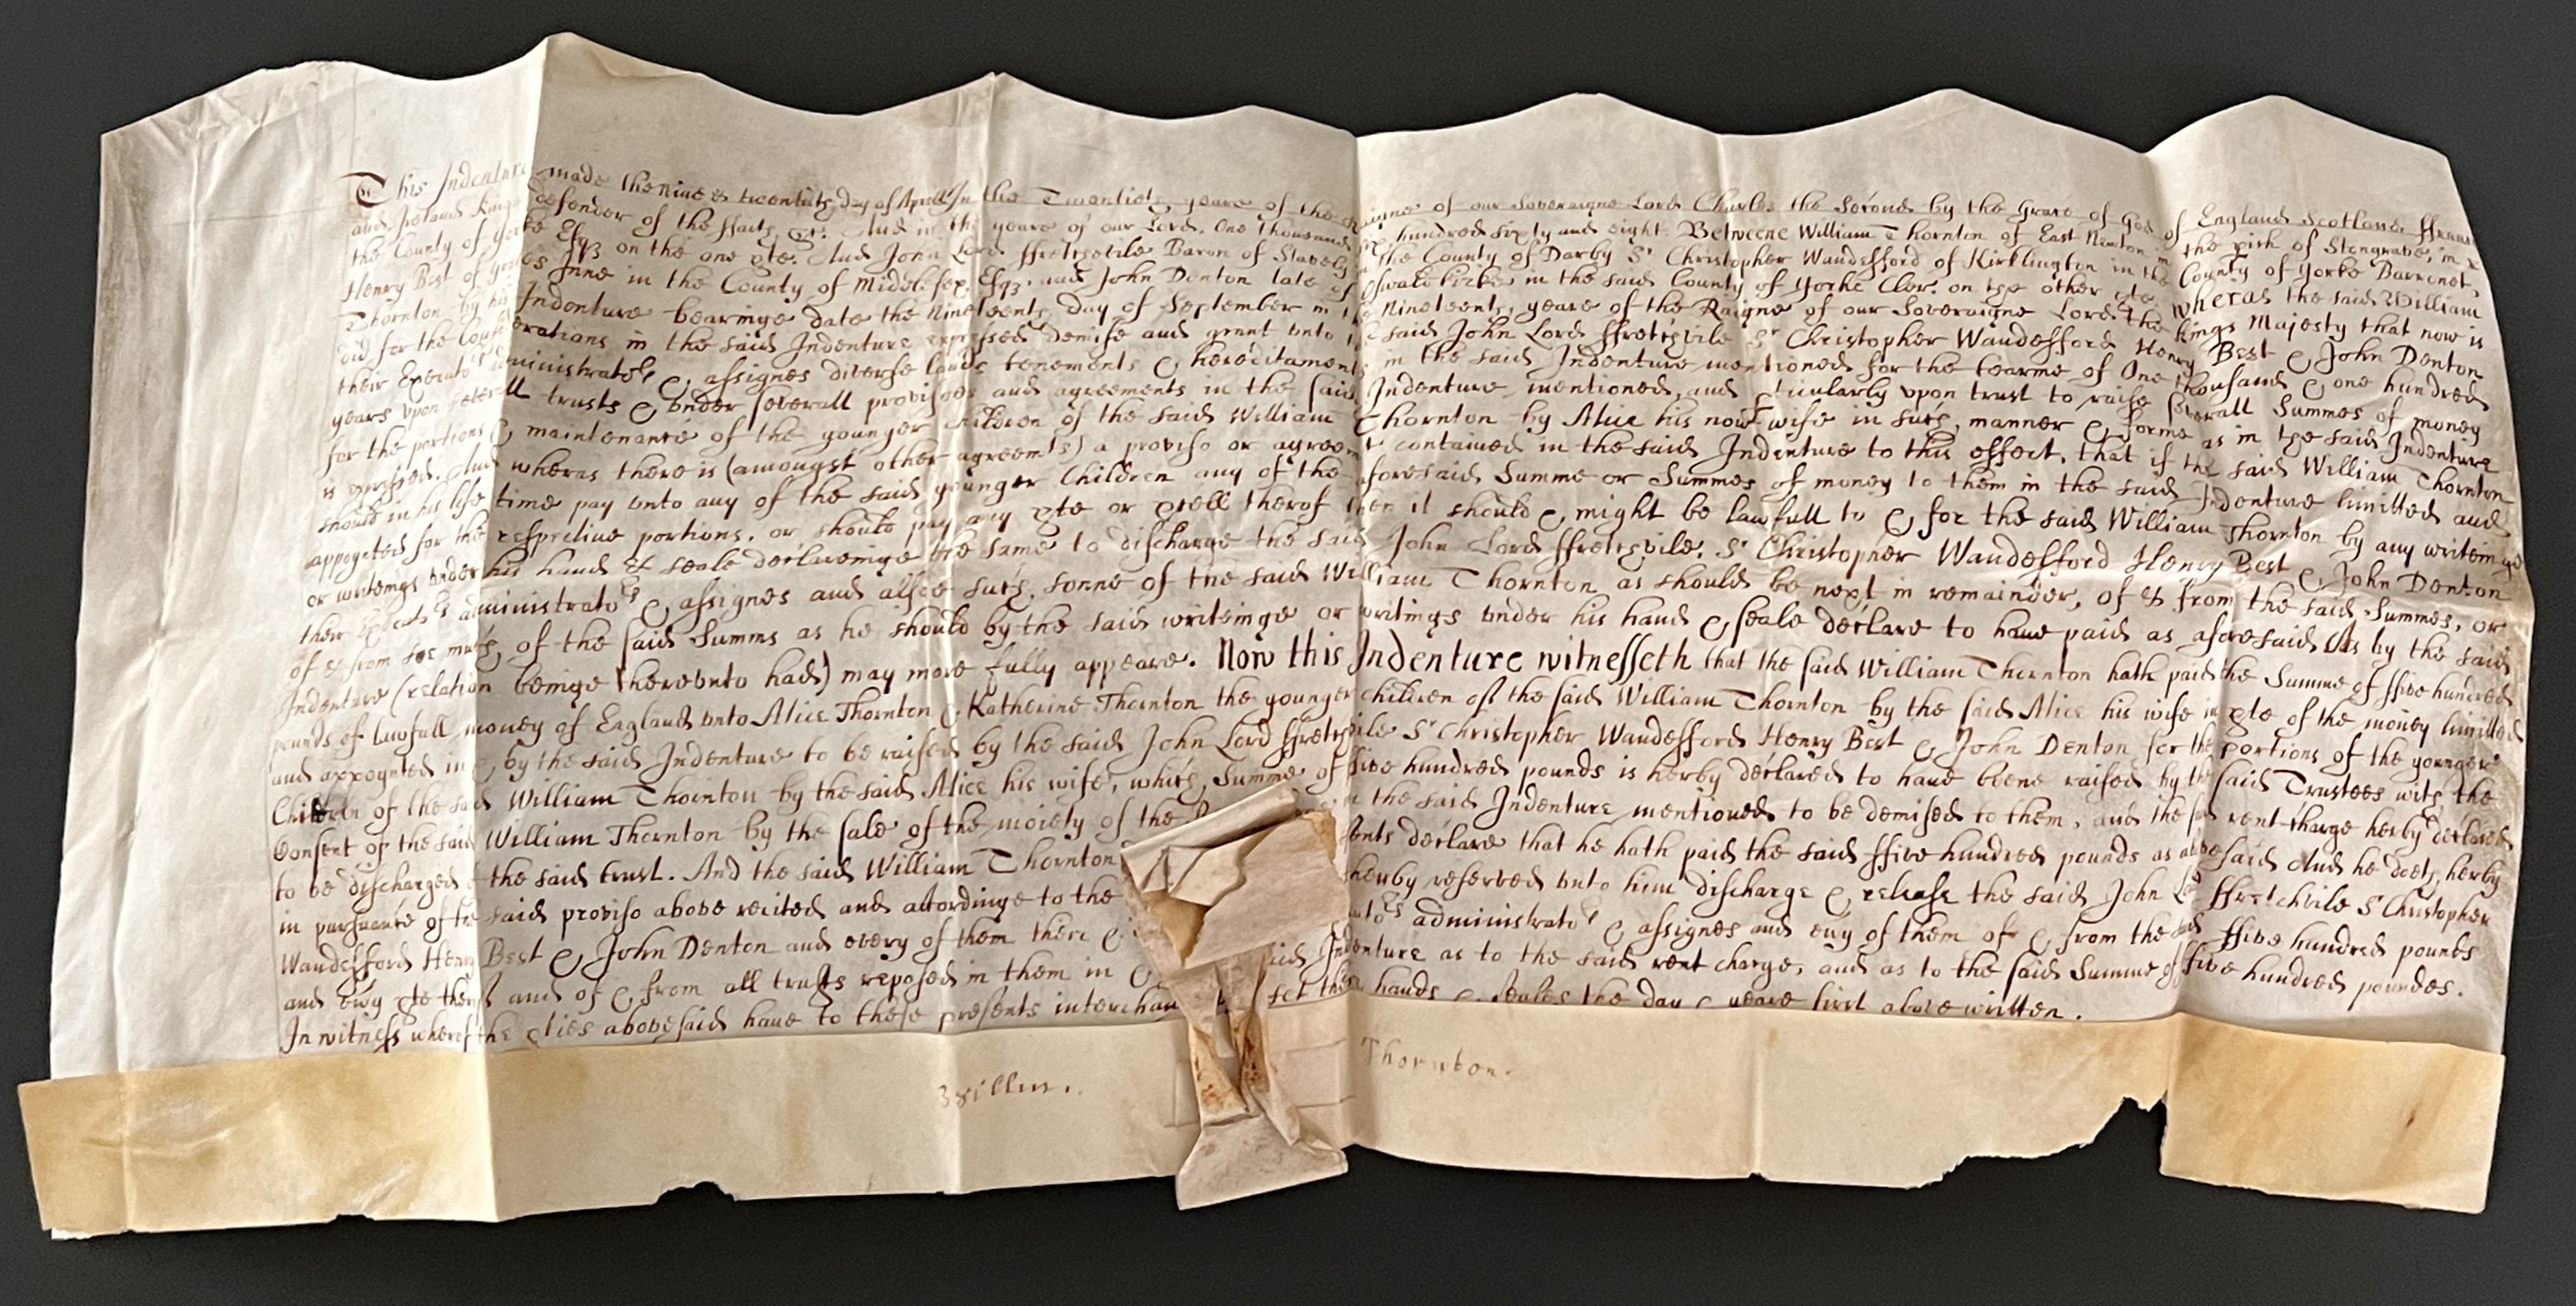 This Indenture made the nine & twentith day of Aprill In the Twentieth yeare of the Raigne of our Soveraigne Lord Charles the Second by the Grace of God of England Scotland ffrance
and Ireland Kinge defender of the ffaith &c. And in the yeare of our Lord, One thousand six hundred sixty and eight Betweene William Thornton of East Newton in the pish of Stongrave, in
the County of Yorke Esqz on the one pte. And John Lord ffretchvile Baron of Stavely in the County of Darby Sr Christopher Wandesford of Kirklington in the County of Yorke Barronet,
Henry Best of Grates Inne in the County of Middlesex, Esqz. and John Denton late of Oswaldkirke in the said County of Yorke Cler. on the other pte. wheras the said William
Thornton by his Indenture bearinge date the Nineteenth day of September in the Nineteenth yeare of the Raigne of our Soveraigne Lord the kings Majesty that now is
did for the Considerations in the said Indenture expressed demise and grant vnto the said John Lord ffretchvile Sr Christopher Wandesford Henry Best & John Denton
their Executors administrators & assignes diverse lands tenements & hereditaments in the said Indenture mentioned for the tearme of One thousand & one hundred
years vpon severall trusts & vnder severall provisoes and agreements in the said Indenture mentioned, and pticularly vpon trust to raise severall Summes of money
for the portions & maintenance of the younger children of the said William Thornton by Alice his now wife in such manner & forme as in the said Indenture
is expressed. And wheras there is (amongst other agreemts) a proviso or agreemt contained in the said Indenture to this effect, that if the said William Thornton
should in his life time pay vnto any of the said younger Children any of the aforesaid Summe or Summes of money to them in the said Indenture limitted and
appoynted for their respective portions, or should pay any pte or pcell therof then it should & might be lawfull to & for the said William Thornton by any writeinge
or writeings vnder his hand & seale declareinge the same to discharge the said John Lord ffretchvile, Sr Christopher Wandesford Henry Best & John Denton
their Executors administrators & assignes and allsoe such sonne of the said William Thornton as should be next in remainder, of & from the said Summes, or
of & from soe much of the said Summs as he should by the said writeinge or writings vnder his hand & seale declare to haue paid as aforesaid As by the said
Indenture (relation beinge therevnto had) may more fully appeare. Now this Indenture witnesseth that the said William Thornton hath paid the Summe of ffive hundred
pounds of lawfull money of England vnto Alice Thornton & Katherine Thornton the younger children of the said William Thornton by the said Alice his wife in pte of the money limitted
and appoynted in & by the said Indenture to be raised by the said John Lord ffretchvile Sr Christopher Wandesford Henry Best & John Denton for the portions of the younger
Children of the said William Thornton by the said Alice his wife, which Summe of ffive hundred pounds is herby declared to haue beene raised by the said Trustees with the
Consent of the said William Thornton by the sale of the moiety of the in the said Indenture mentioned to be demised to them, and the said rent-charge herby declared
to be discharged of the said trust. And the said William Thornton sents declare that he hath paid the said ffive hundred pounds as abovesaid And he doeth herby
in pursuance of the said proviso above recited and accordinge to the therby reserved vnto him discharge & release the said John Lord ffretchvile Sr Christopher
Wandesford Henry Best & John Denton and every of them their & administrators & assignes and evy of them of & from the said ffive hundred pounds
and evy pte therof and of & from all trusts reposed in them in & said Indenture as to the said rent charge, and as to the said Summe of ffive hundred poundes.
In witness wherof the pties abovesaid haue to these presents interchan set their hands & seales the day & yeare first above written.
Willm. Thornton.